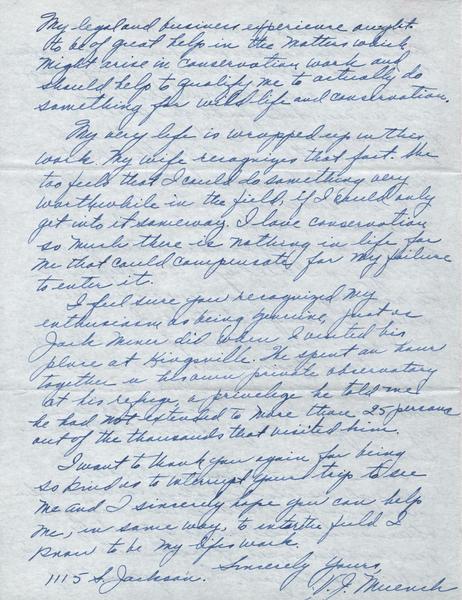 My legal and business experience ought
to be of great help in the matters which
might arise in conservation work and
should help to qualify me to actually do
something for wild life and conservation.
My very life is wrapped up in this
work. My wife recognizes that fact. She
too feels that I could do something very
worthwhile in the field, if I could only
get into it someway. I love conservation
so much there is nothing in life for
me that could compensate for my failure
to enter it.
I feel sure you recognized my
enthusiasm as being genuine, just as
Jack Miner did when I visited his
place at Kingsville. He spent an hour
together in his own private observatory
at his refuge, a privelige he told me
he had not extended to more than 25 persons
out of the thousands that visited him.
I want to thank you again for being
so kind as to interrupt your trip to see
me and I sincerely hope you can help
me, in some way, to enter the field I
know to be my life's work.
Sincerely Yours,
1115 S. Jackson. V. J. Muench